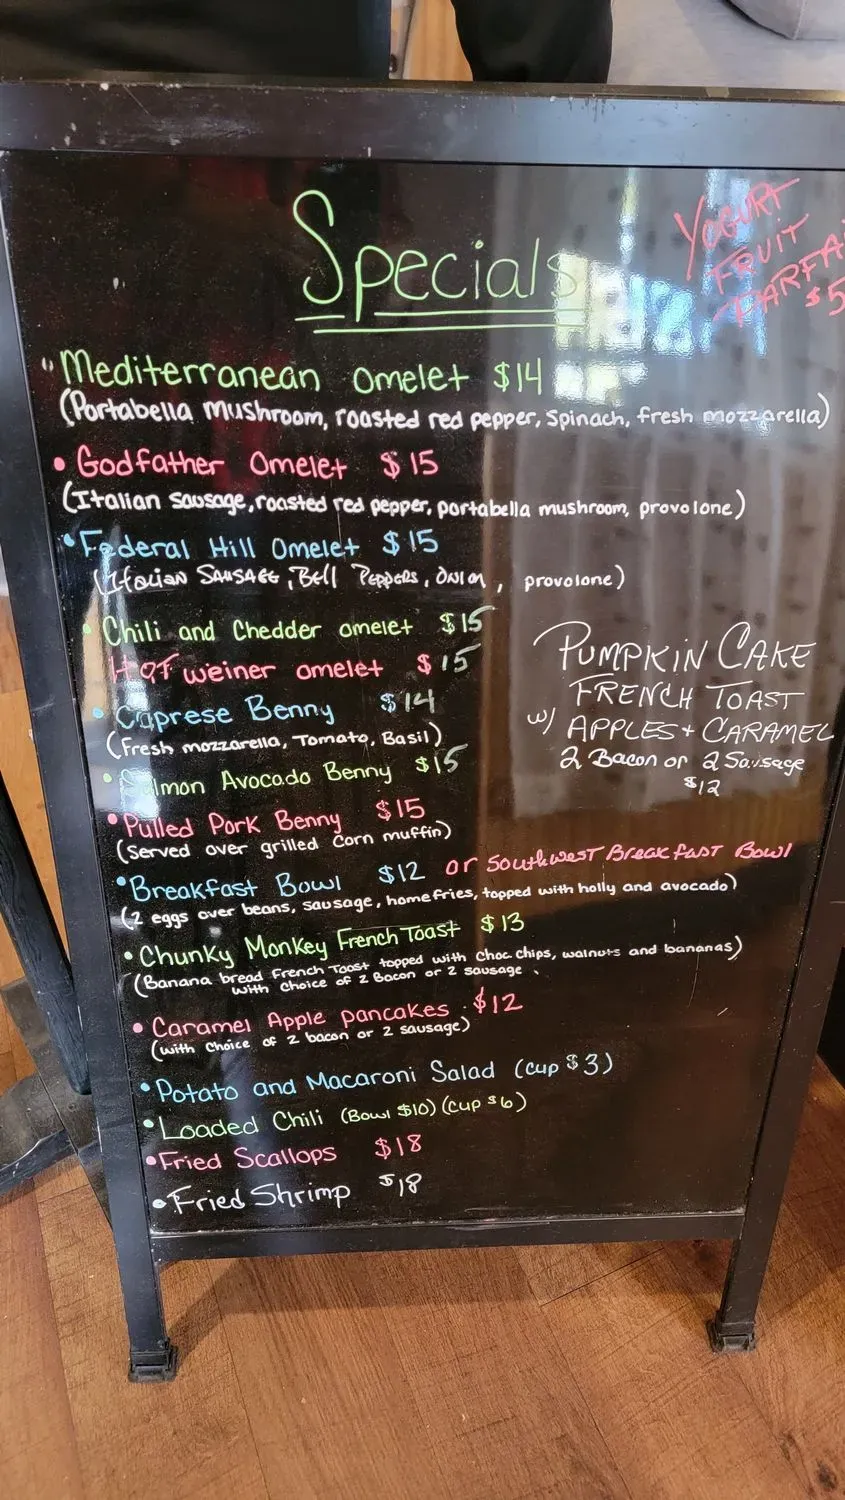 Specials
YOGURT
FRUIT
PARFA
$5
Mediterranean omelet $14
(Portabella mushroom, roasted red pepper, spinach, fresh mozzarella)
• Godfather Omelet $15
(Italian sausage, roasted red pepper, portabella mushroom, provolone)
• Federal Hill Omelet $15
(Italian Sausage, Bell Peppers, Onion, provolone)
• Chili and Chedder omelet $15
HOT weiner omelet $15
• Caprese Benny $14
(Fresh mozzarella, Tomato, Basil)
• Salmon Avocado Benny $15
• Pulled Pork Benny $15
(Served over grilled corn muffin)
PUMPKIN CAKE
FRENCH TOAST
w/ APPLES + CARAMEL
2 Bacon or 2 Sausage
$12
• Breakfast Bowl $12 or Southwest Breakfast Bowl
(2 eggs over beans, sausage, homefries, topped with holly and avocado)
• Chunky Monkey French Toast $13
(Banana bread French Toast topped with choc chips, walnuts and bananas)
with choice of 2 Bacon or 2 sausage
• Caramel Apple pancakes $12
(with choice of 2 bacon or 2 sausage)
• Potato and Macaroni Salad (cup $3)
• Loaded Chili (Bowl $10) (cup $6)
• Fried Scallops $18
• Fried Shrimp $18